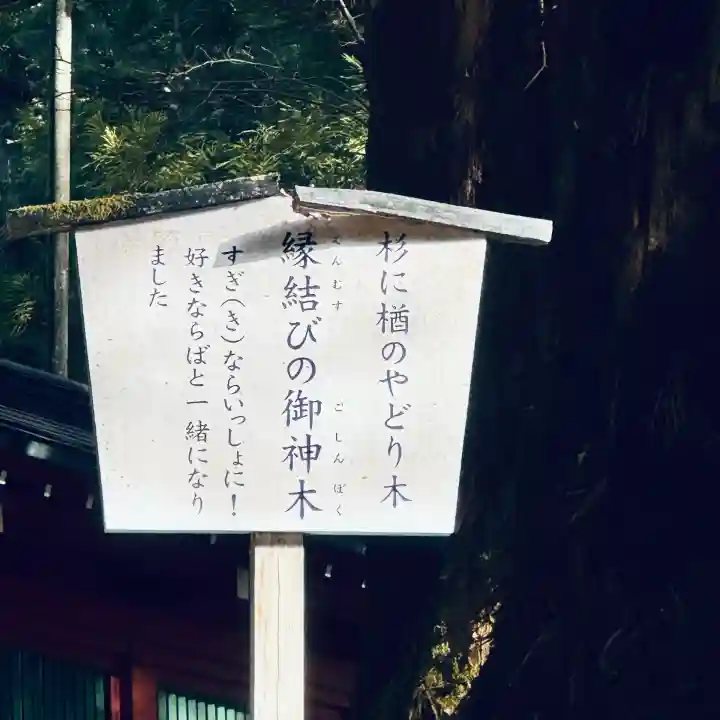 杉に楢のやどり木
縁結びの御神木
えんむす
ごしんぼく
すぎ(き)ならいっしょに!
好きならばと一緒になり
ました